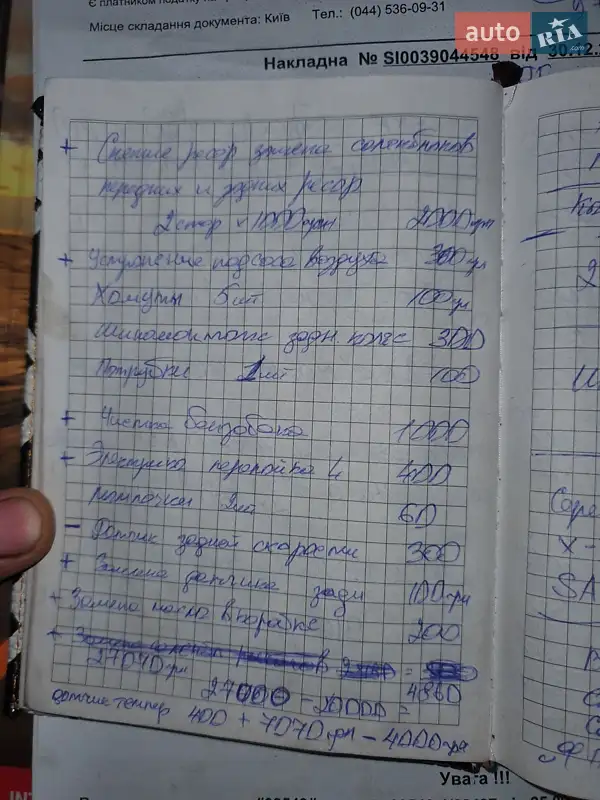 Є платником податку на пр
Місце складання документа: Київ Тел.: (044) 536-09-31
auto RIA .com
Накладна № SI0039044548 від 30.12.2
+ Снятие ресор замена саленблоков
передних и задних ресор
2 стор × 1000 грн 2000 грн
+ Устранение подсоса воздуха 300 гр
Хомуты 5 шт 100 гр
Шиномонтаж задн. колес 300
Патрубки 1 шт 100
+ Чистка бензобака 1000
+ Электрика 400
Лампочки 2 шт 60
− Датчик задней скорости 300
+ Замена датчика задн 100 грн
+ Замена масла в коробке 200
27070 грн = 4860
27000 − 20000 =
датчик темпер 400 + 7070 грн − 4000 грн
SA
Увага !!!